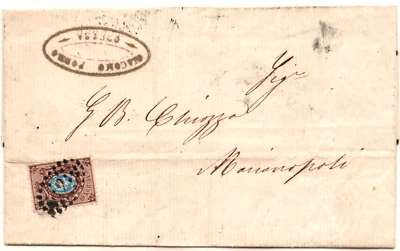 GIACOMO PORRO
ODESSA
Sigr
G. B. Chiozza
Marianopoli